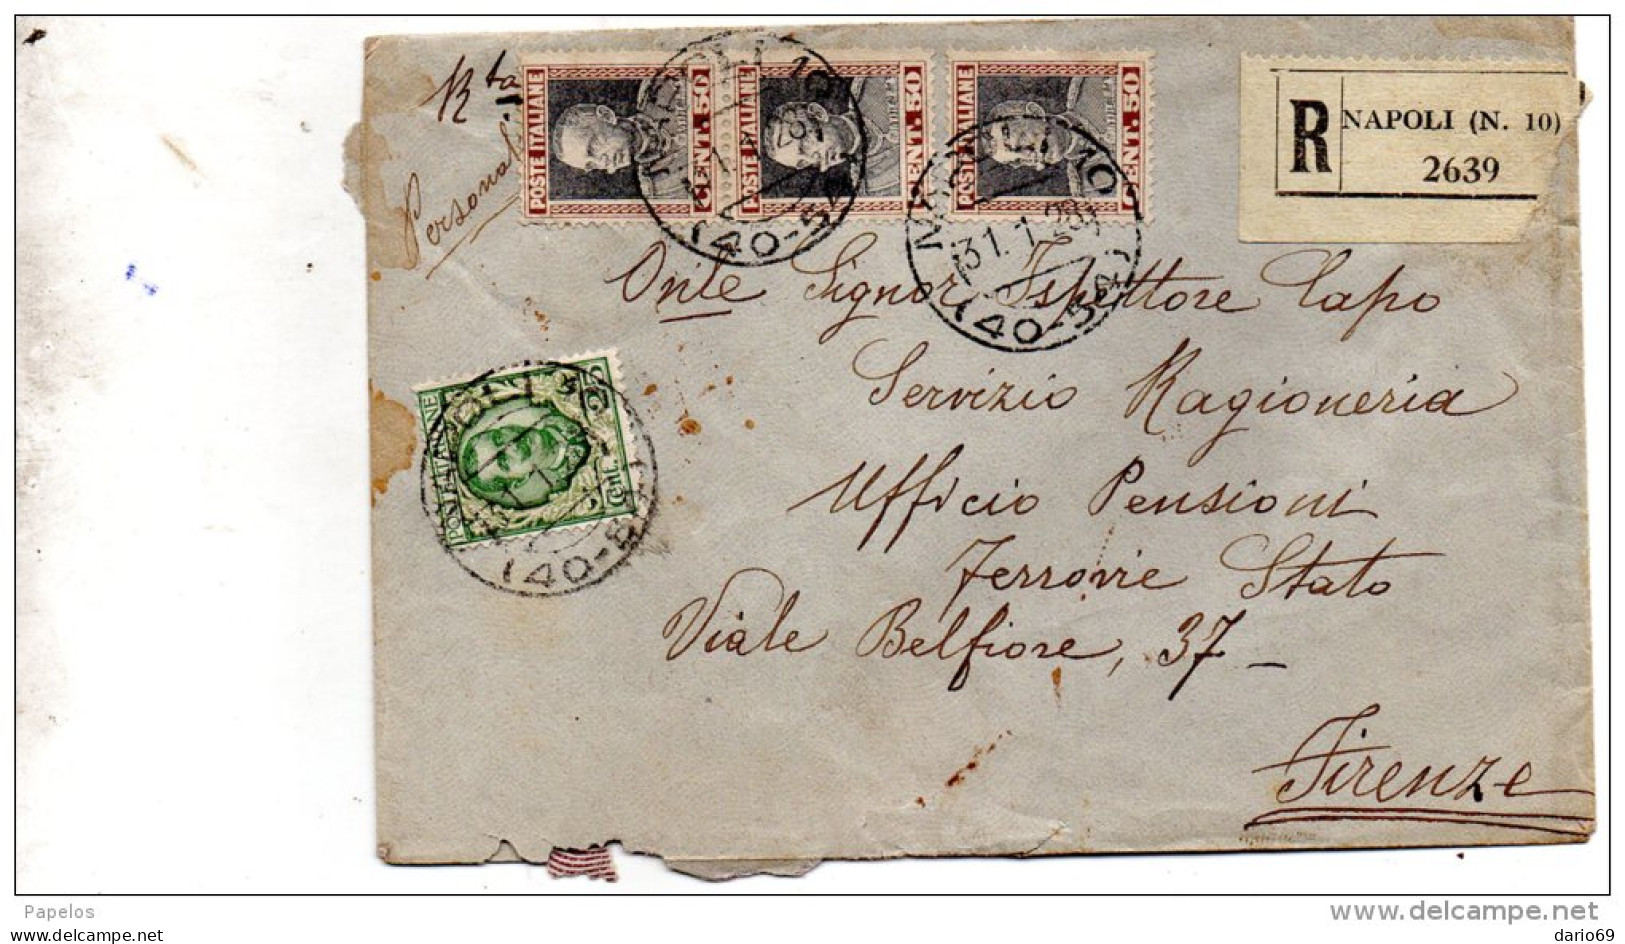 Rta
Personale
POSTE ITALIANE
CENT. 50
POSTE ITALIANE
CENT. 50
POSTE ITALIANE
CENT. 50
NAPOLI 10
(40-54)
31.1.28
(40-54)
R
NAPOLI (N. 10)
2639
Onle Signor Ispettore Capo
Servizio Ragioneria
Ufficio Pensioni
Ferrovie Stato
Viale Belfiore, 37 -
Firenze
POSTE ITALIANE
Cent. 25
(40-5
Papelos
www.delcampe.net
www.delcampe.com
dario69